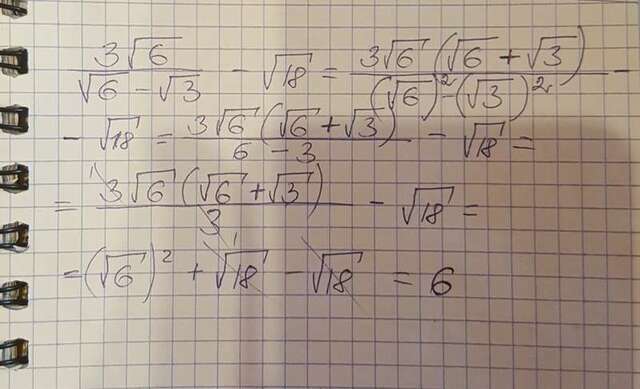 3√6 / (√6 − √3) − √18 = 3√6 (√6 + √3) / ((√6)² − (√3)²) −
− √18 = 3√6 (√6 + √3) / (6 − 3) − √18 =
= 3√6 (√6 + √3) / 3 − √18 =
= (√6)² + √18 − √18 = 6